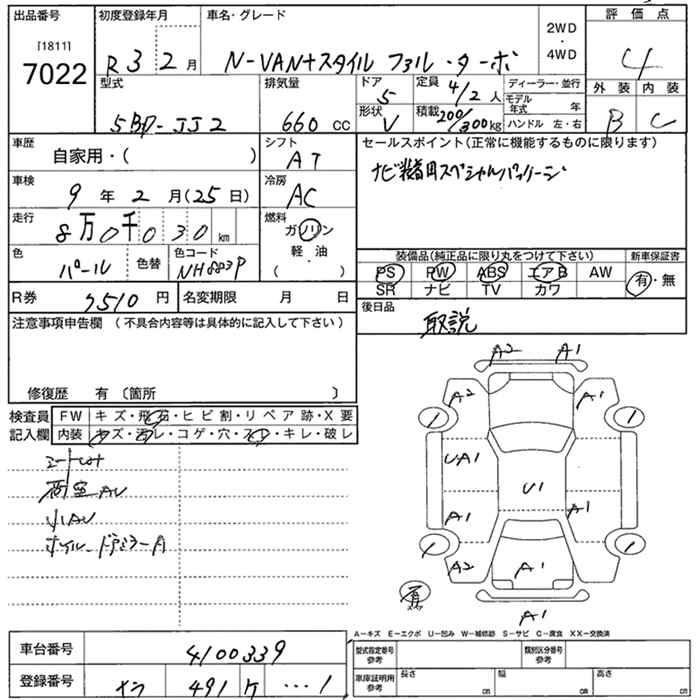 出品番号
[1811]
7022
初度登録年月
R 3 2 月
車名・グレード
N-VAN+スタイル ファル・ターボ
2WD
・
4WD
評価点
4
外装 内装
B C
型式
5BD-JJ2
排気量
660 CC
ドア
5
形状
V
定員
4/2 人
積載
200/300 kg
ディーラー・並行
モデル年式 年
ハンドル 左・右
車歴
自家用・( )
シフト
AT
車検
9 年 2 月 (25 日)
冷房
AC
走行
8万0千030 km
燃料
ガソリン
軽・油
( )
色
パール
色替
色コード
NH883P
R券 7510 円
名変期限 月 日
セールスポイント(正常に機能するものに限ります)
ナビ装着用スペシャルパッケージ
装備品(純正品に限り丸をつけて下さい)
PS PW ABS エアB AW
SR ナビ TV カワ
新車保証書
有・無
後日品
取説
注意事項申告欄 (不具合内容等は具体的に記入して下さい)
修復歴 有 〔箇所 〕
検査員記入欄
FW キズ・飛石・ヒビ割・リペア跡・X要
内装 キズ・汚レ・コゲ・穴・スレ・キレ・破レ
荷室AU
小AU
ホイル、ドアミラーA
A2 A1
A2 A1
1 1
U・A1
U1
A1 A1
1 1
A2 A1 A2
A1
A-キズ E-エクボ U-凹み W-補修跡 S-サビ C-腐食 XX-交換済
車台番号 4100339
登録番号 491 ケ ・・・1
型式指定番号 参考
類別区分番号 参考
車庫証明用 参考
長さ cm
幅 cm
高さ cm